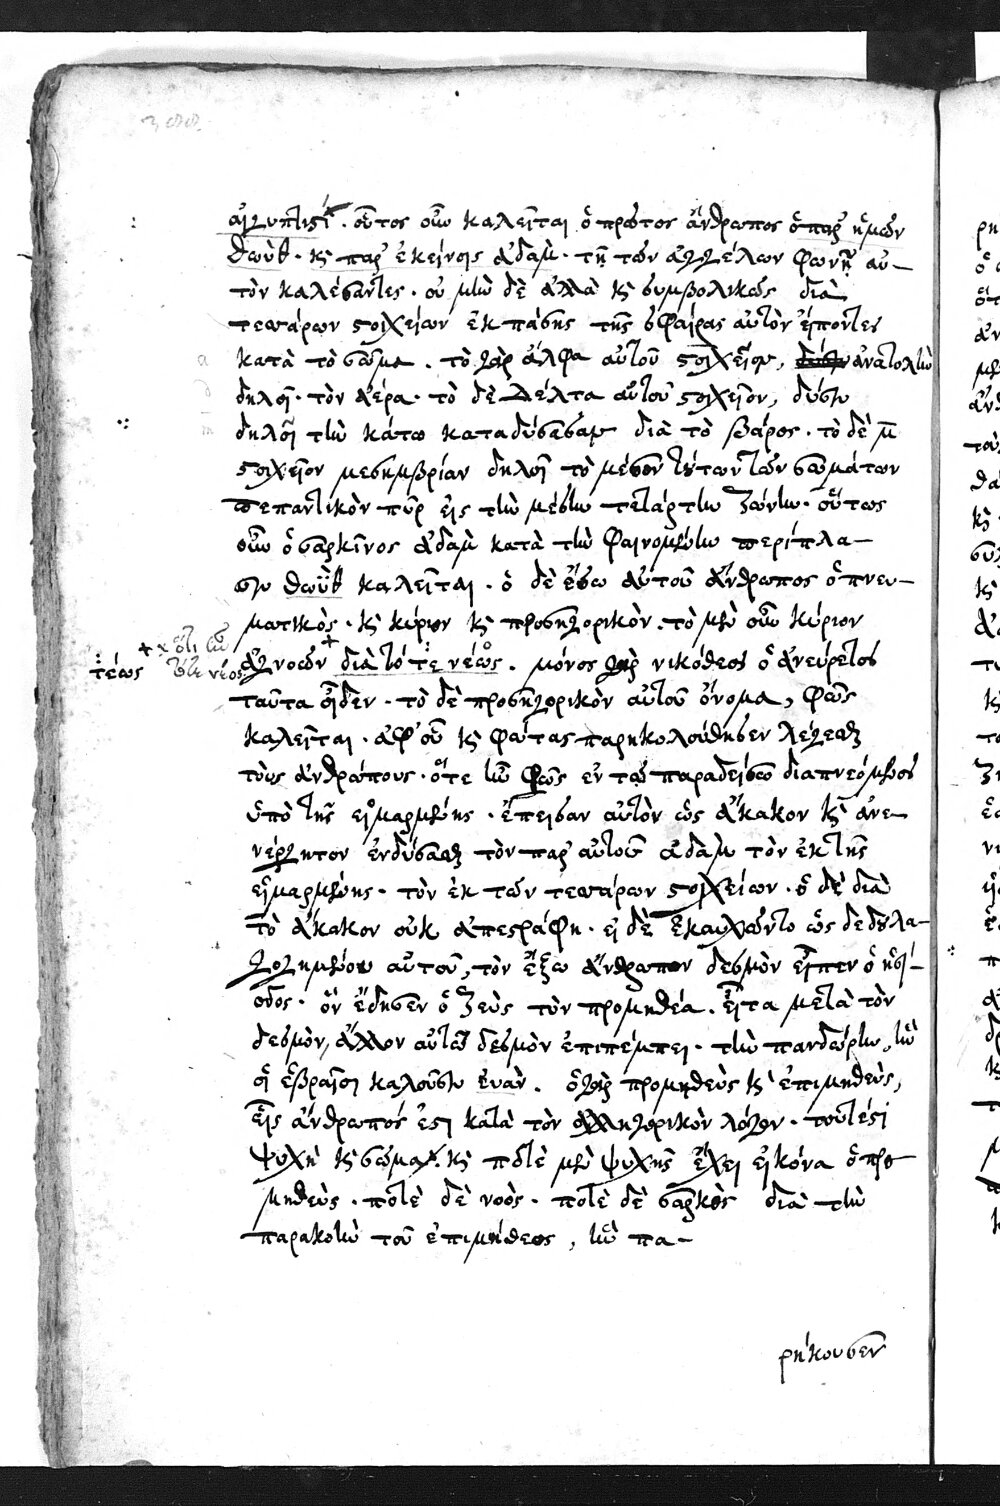 αἰγυπτιστί. οὗτος οὖν καλεῖται ὁ πρῶτος ἄνθρωπος ὁ παρ' ἡμῶν
θωῢθ. κ παρ' ἐκείνοις ἀδαμ. τῆ τῶν ἀγγέλων φωνῆ αὐ-
τὸν καλέσαντες. οὐ μὴν δὲ ἀλλὰ κ συμβολικῶς διὰ
τεσσάρων στοιχείων ἐκ πάσης τῆς σφαίρας αὐτὸν εἰπόντες
κατὰ τὸ σῶμα. τὸ γὰρ ἄλφα αὐτοῦ στοιχεῖον, ἀνατολὴν
δηλοῖ. τὸν ἀέρα. τὸ δὲ Δέλτα αὐτοῦ στοιχεῖον, δύσιν
δηλοῖ τὴν κάτω καταδύσασαν διὰ τὸ βάρος. τὸ δὲ μ
στοιχεῖον μεσημβρίαν δηλοῖ τὸ μέσον τούτων τῶν σωμάτων
πεπαντικὸν πῦρ εἰς τὴν μέσην τετάρτην ζώνην. οὕτως
οὖν ὁ σάρκινος ἀδαμ κατὰ τὴν φαινομένην περίπλα-
σιν θωῢθ καλεῖται. ὁ δὲ ἔσω αὐτοῦ ἄνθρωπος ὁ πνευ-
ματικὸς. κ κύριον κ προσηγορικὸν. τὸ μὲν οὖν κύριον
τέως ὅτε νέος
ἀγνοῶν διὰ τὸ τε νέως. μόνος γὰρ νικόθεος ὁ ἀνεύρετος
ταῦτα οἶδεν. τὸ δὲ προσηγορικὸν αὐτοῦ ὄνομα, φῶς
καλεῖται. ἀφ' οὗ κ φῶτας παρηκολούθησεν λέγεσθαι
τοὺς ἀνθρώπους. ὅτε ἦν φῶς ἐν τῶ παραδείσω διαπνεόμενος
ὑπὸ τῆς εἱμαρμένης. ἔπεισαν αὐτὸν ὡς ἄκακον κ ἀνε-
νέργητον ἐνδύσασθαι τὸν παρ' αὐτοῦ ἀδαμ τὸν ἐκ τῆς
εἱμαρμένης. τὸν ἐκ τῶν τεσσάρων στοιχείων. ὁ δὲ διὰ
τὸ ἄκακον οὐκ ἀπεστράφη. εἰ δὲ ἐκαυχῶντο ὡς δεδουλα-
γωγημένου αὐτοῦ, τὸν ἔξω ἄνθρωπον δεσμὸν εἶπεν ὁ ἡσί-
οδος. ὃν ἔδησεν ὁ Ζεὺς τὸν προμηθέα. εἶτα μετὰ τὸν
δεσμὸν, ἄλλον αὐτῶ δεσμὸν ἐπιπέμπει. τὴν πανδώρην, ἣν
οἱ ἑβραῖοι καλοῦσιν εὐαν. ὁ γὰρ προμηθεὺς κ ἐπιμηθεὺς,
εἷς ἄνθρωπός ἐστι κατὰ τὸν ἀλληγορικὸν λόγον. τουτέστι
ψυχὴ κ σῶμα. κ ποτὲ μὲν ψυχῆς ἔχει εἰκόνα ὁ προ
μηθεὺς. ποτὲ δὲ νοὸς. ποτὲ δὲ σαρκὸς διὰ τὴν
παρακοὴν τοῦ ἐπιμηθέος, ἣν πα-
ρήκουσεν